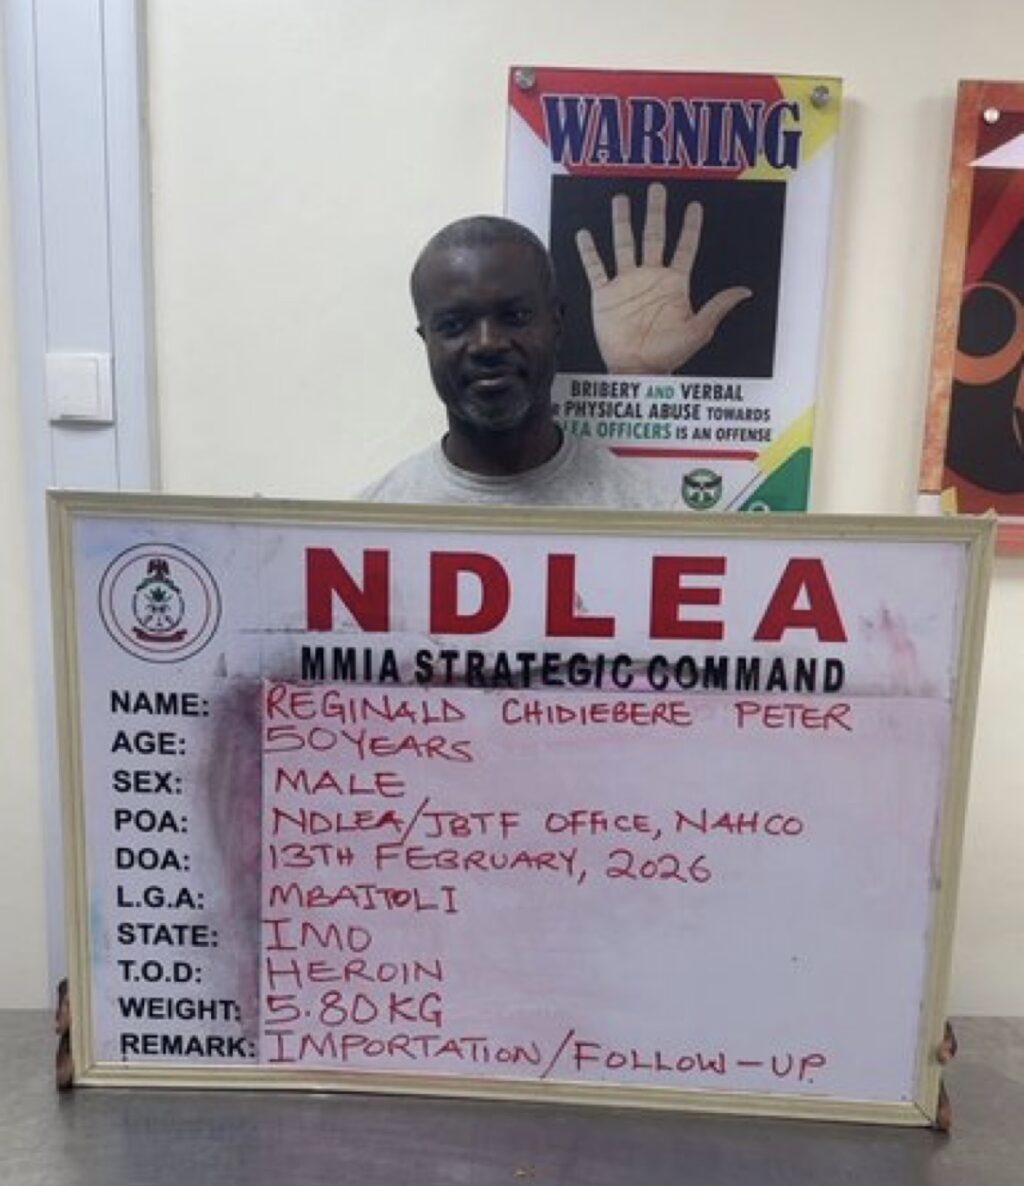 WARNING
BRIBERY AND VERBAL
PHYSICAL ABUSE TOWARDS
OFFICERS IS AN OFFENSE
NDLEA
MMIA STRATEGIC COMMAND
NAME: REGINALD CHIDIEBERE PETER
AGE: 50 YEARS
SEX: MALE
POA: NDLEA/JBTF OFFICE, NAHCO
DOA: 13TH FEBRUARY, 2026
L.G.A: MBAITOLI
STATE: IMO
T.O.D: HEROIN
WEIGHT: 5.80KG
REMARK: IMPORTATION/FOLLOW-UP